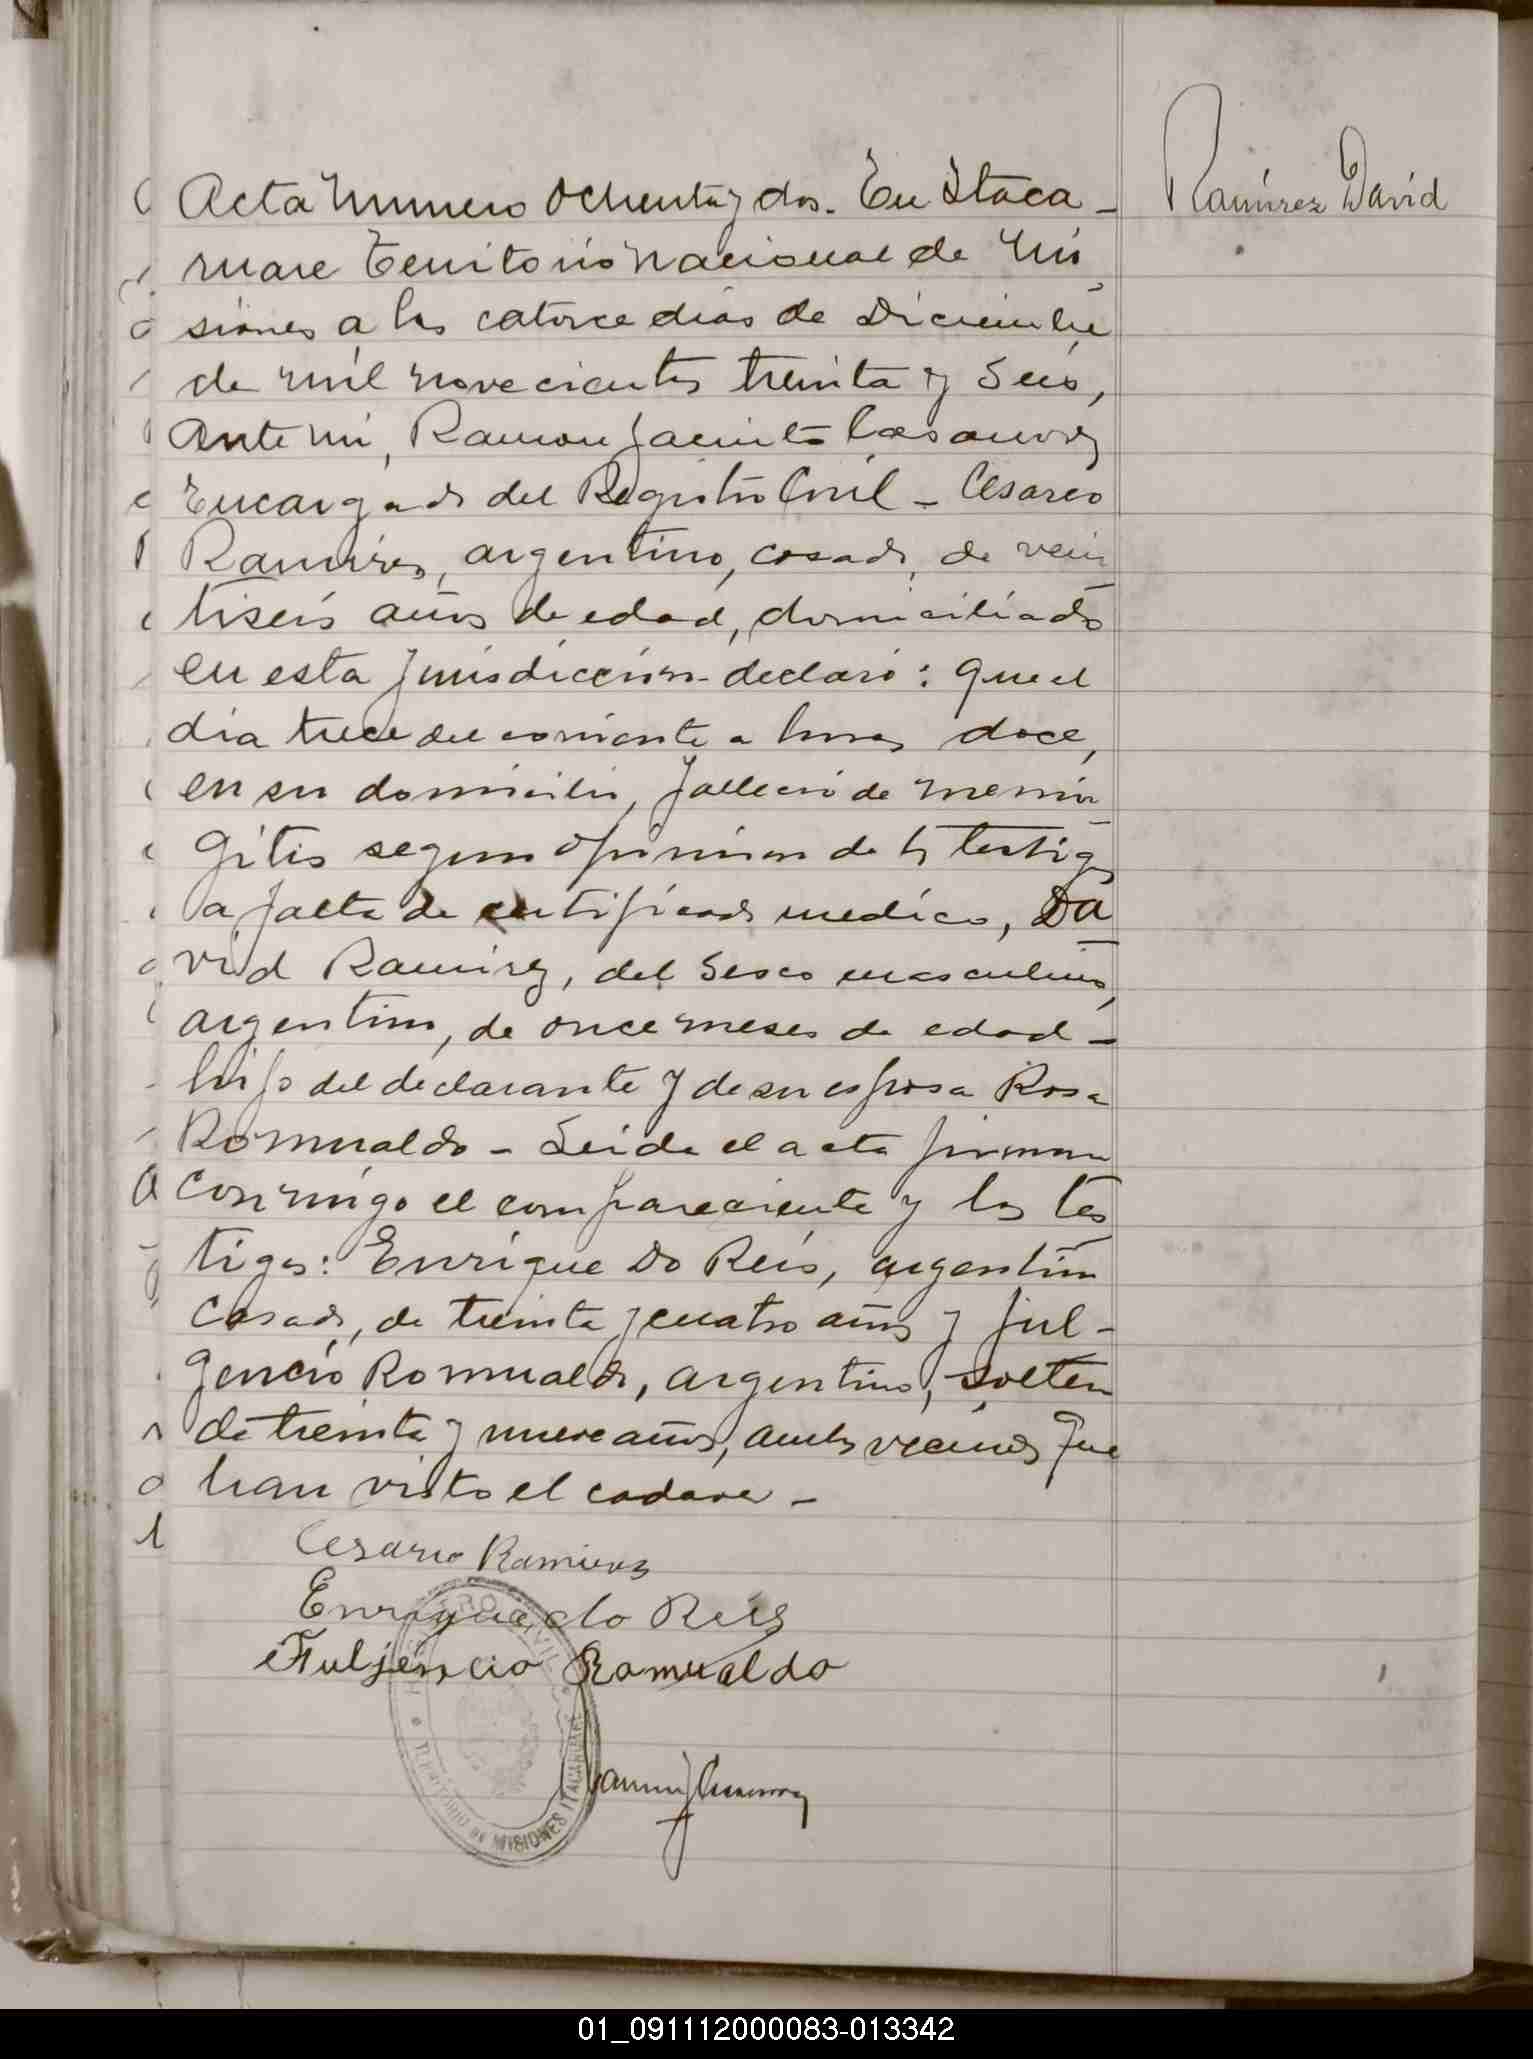 Ramírez David
Acta Numero Ochenta y dos. En Itaca-
ruare Territorio Nacional de Mi
siones a los catorce dias de Diciembre
de mil novecientos treinta y Seis,
Ante mi, Ramon Jacinto Casanovas
Encargado del Registro Civil - Cesareo
Ramires, argentino, casado, de vein
tiseis años de edad, domiciliado
en esta Jurisdiccion declaró: que el
dia trece del corriente a horas doce,
en su domicilio, falleció de menin
gitis segun opinion de ls testigs
a falta de certificado medico, Da
vid Ramirez, del Sexso masculino,
argentino, de once meses de edad -
hijo del declarante y de su esposa Rosa
Romualdo - Leida el acta firman
conmigo el compareciente y los tes
tigos: Enrique Do Reis, argentino
Casado, de treinta y cuatro años y Ful-
gencio Romualdo, argentino, soltero
de treinta y nueve años, ambs vecinos que
han visto el cadaver -
Cesareo Ramires
Enrique do Reis
Fuljencio Romualdo
REGISTRO CIVIL
TERRITORIO DE MISIONES ITACARUARE
01_091112000083-013342